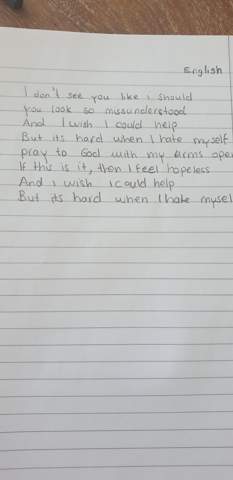 English
I don't see you like i should
you look so missunderstood
And I wish I could help
But its hard when I hate myself
pray to God with my arms ope
If this is it, then I feel hopeless
And i wish i could help
But its hard when I hate mysel